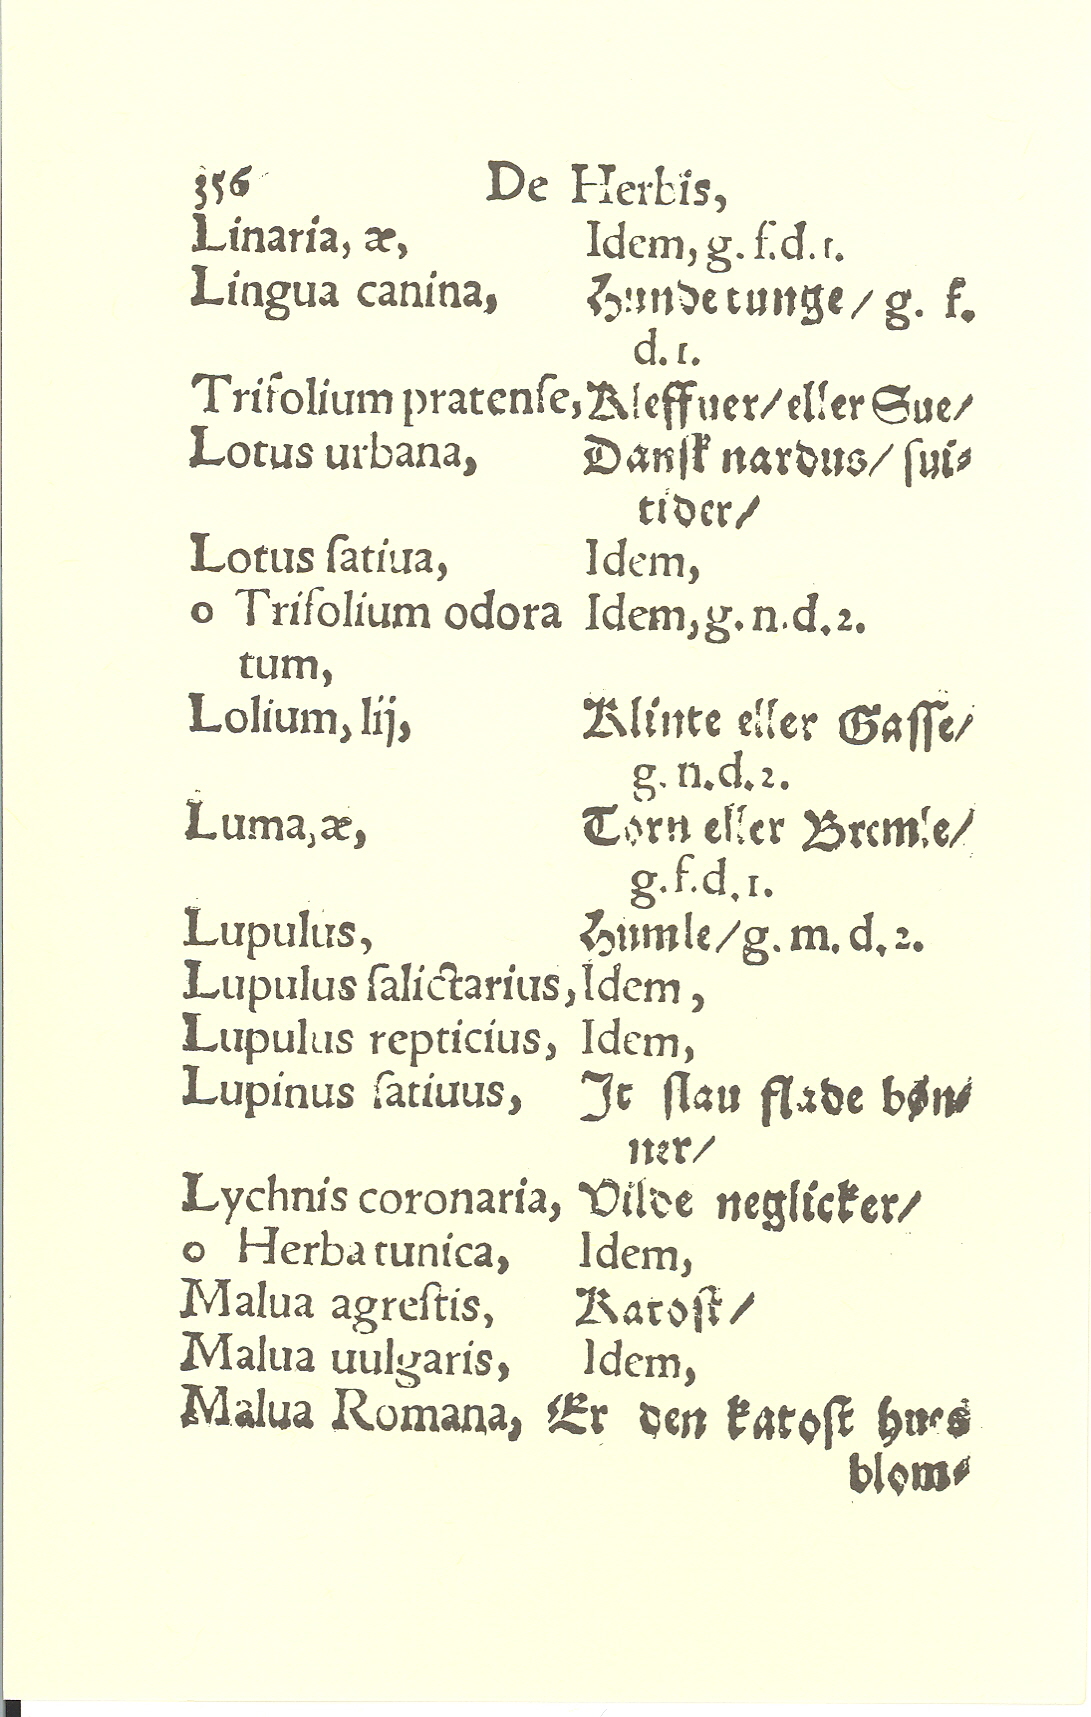 356 De Herbis,
Linaria, æ, Idem, g. f. d. 1.
Lingua canina, Hunde tunge / g. f.
d. 1.
Trifolium pratenſe, Kleffuer / eller Sue /
Lotus urbana, Danſk nardus / ſui⸗
tider /
Lotus ſatiua, Idem,
o Trifolium odora Idem, g. n. d. 2.
tum,
Lolium, lij, Klinte eller Gaſſe /
g. n. d. 2.
Luma, æ, Torn eller Bremle /
g. f. d. 1.
Lupulus, Humle / g. m. d. 2.
Lupulus ſalictarius, Idem,
Lupulus repticius, Idem,
Lupinus ſatiuus, It ſlau flade bøn⸗
ner /
Lychnis coronaria, Vilde neglicker /
o Herba tunica, Idem,
Malua agreſtis, Katoſt /
Malua uulgaris, Idem,
Malua Romana, Er den katoſt hues
blom⸗